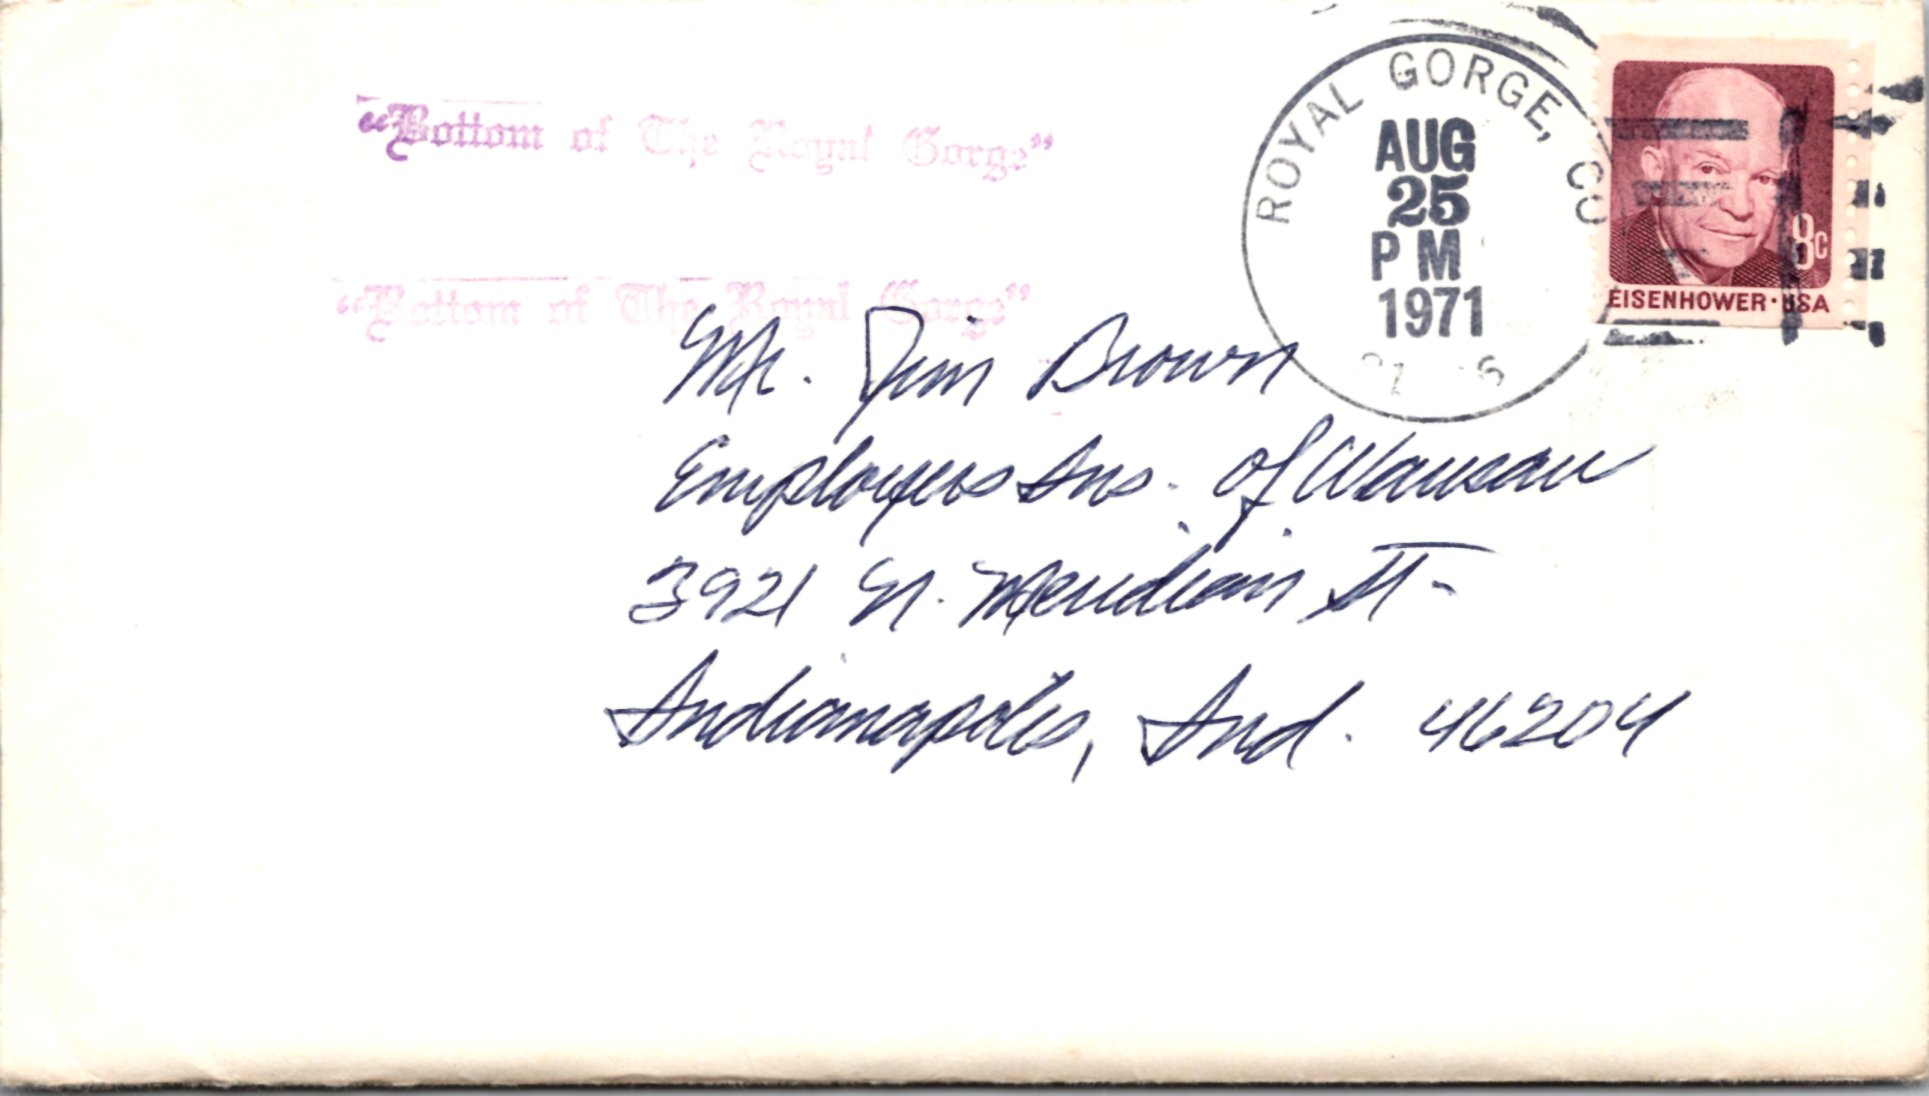 "Bottom of The Royal Gorge"
"Bottom of The Royal Gorge"
ROYAL GORGE, CO
AUG
25
PM
1971
8c
EISENHOWER·USA
Mr. Jim Brown
Employers Ins. of Wausau
3921 N. Meridian St.
Indianapolis, Ind. 46204